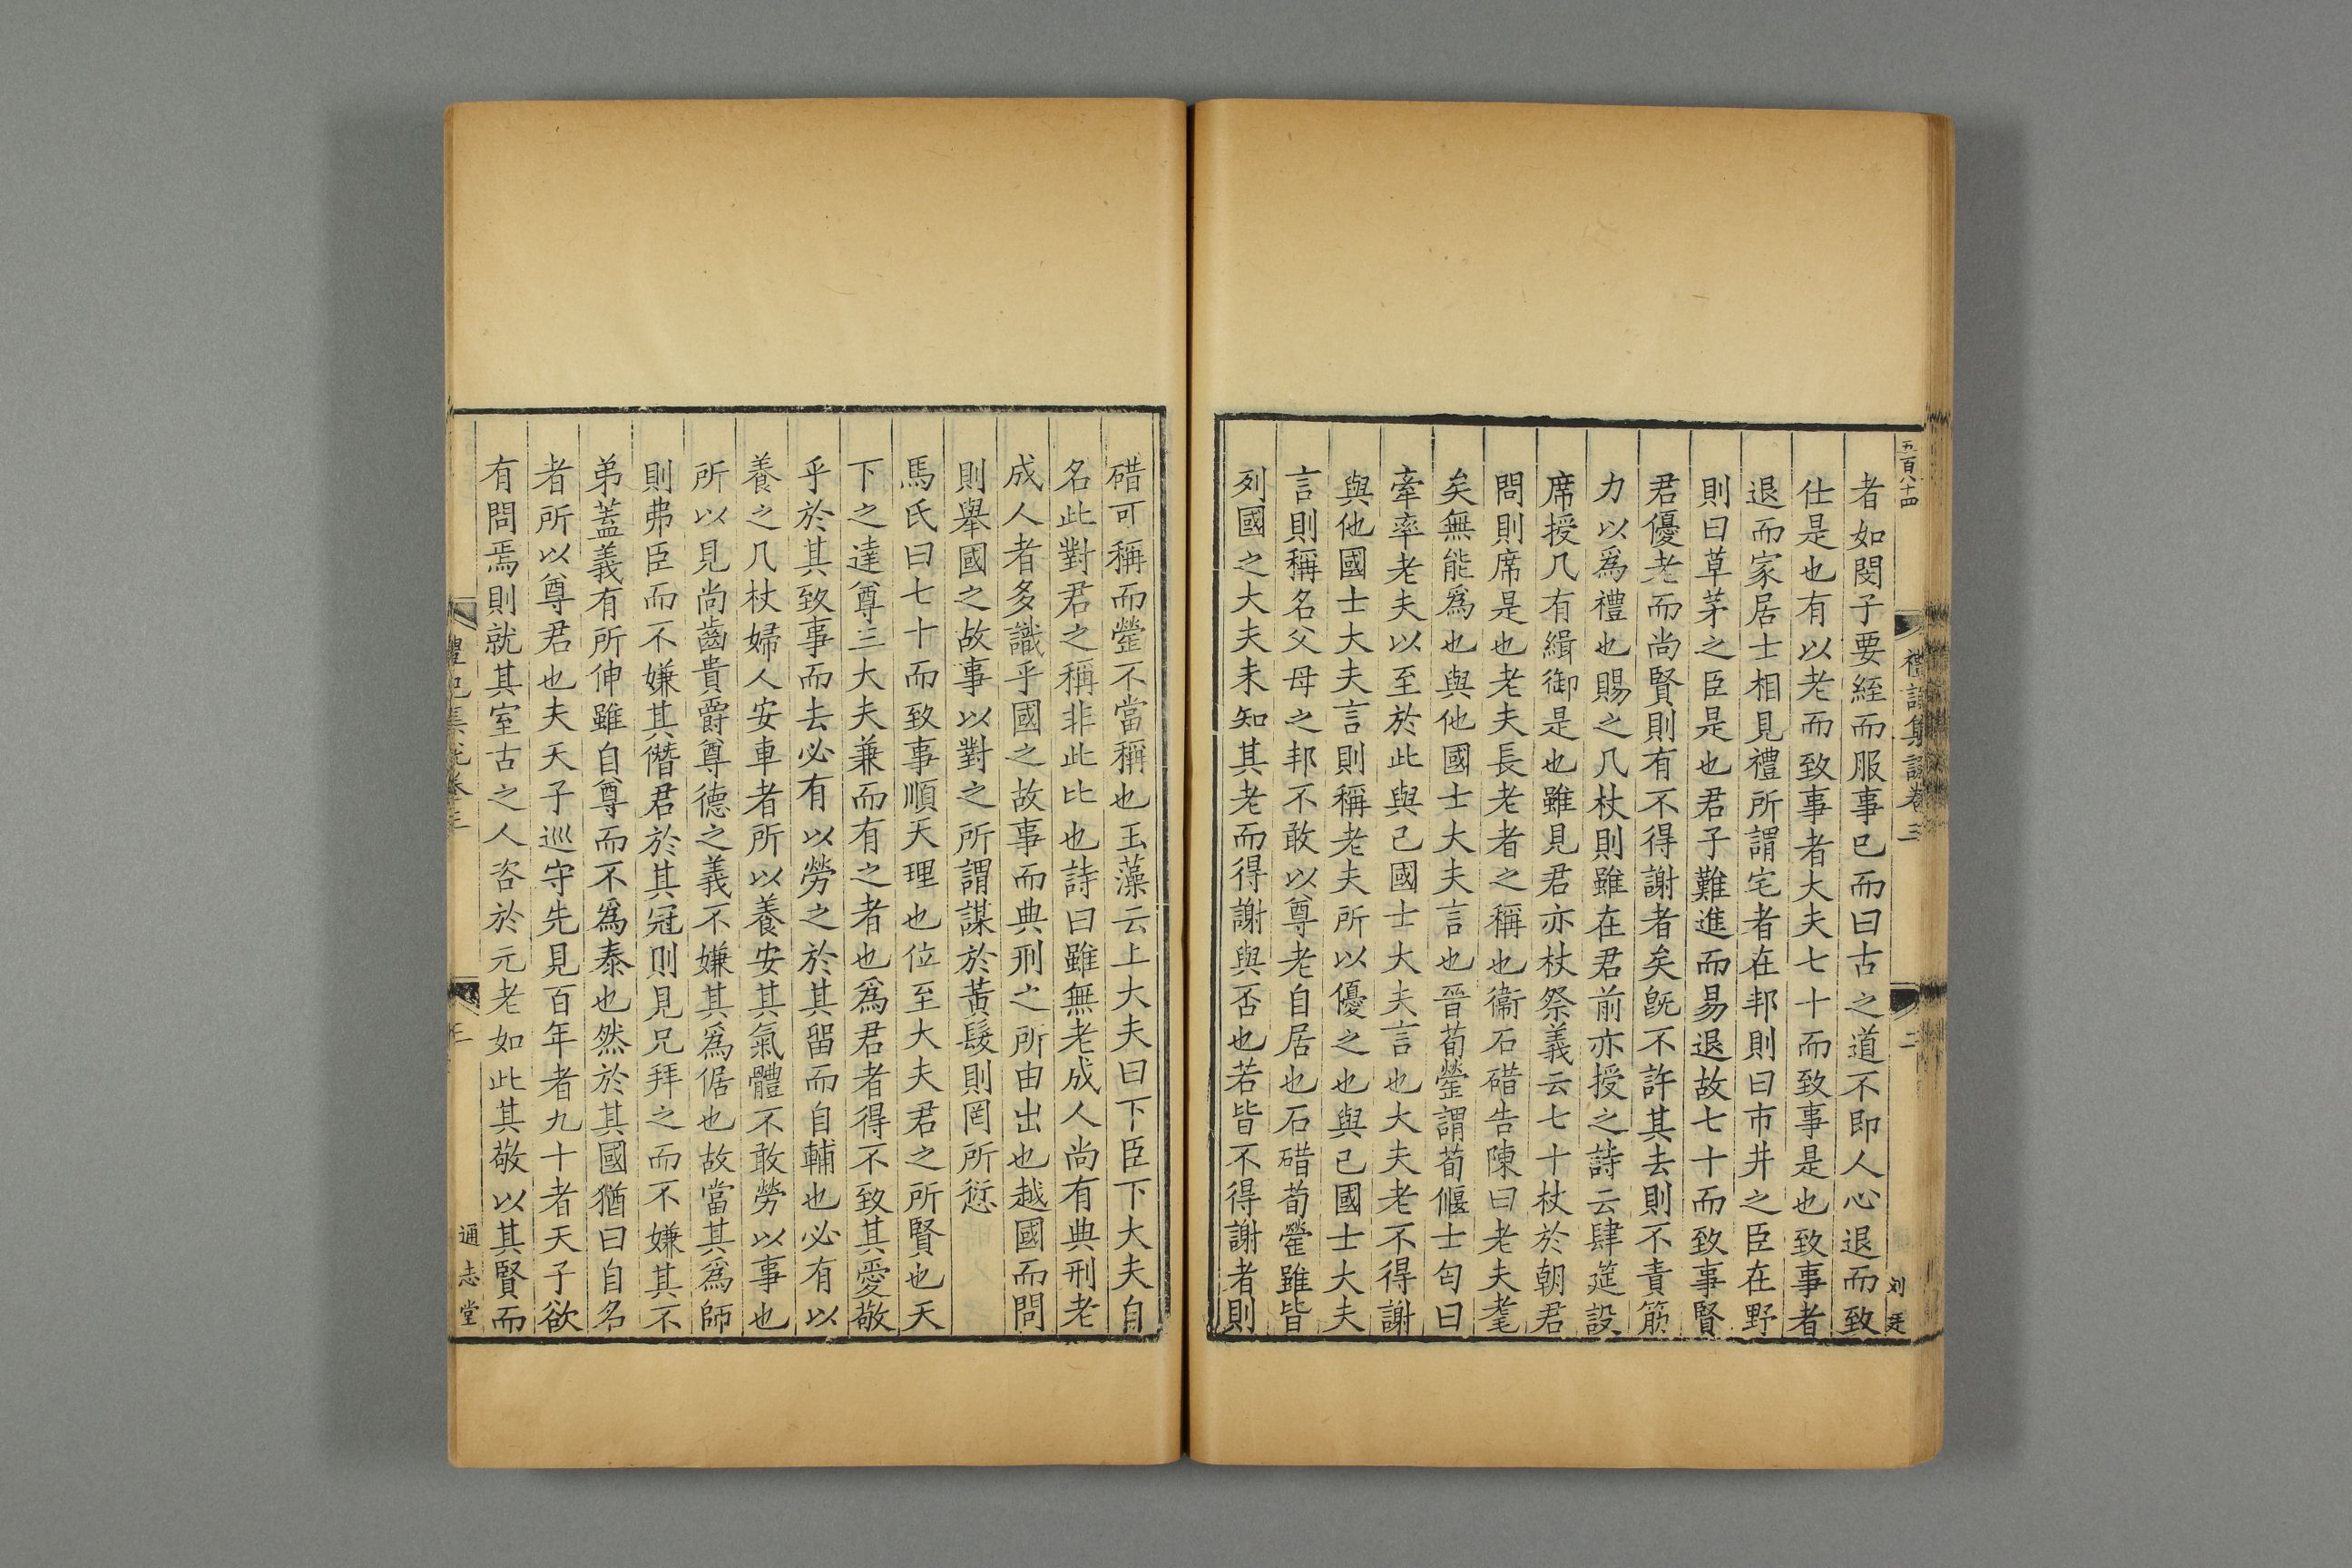 五百八十四
禮記集說卷三
二
刘廷
者如閔子要絰而服事已而曰古之道不即人心退而致
仕是也有以老而致事者大夫七十而致事是也致事者
退而家居士相見禮所謂宅者在邦則曰市井之臣在野
則曰草茅之臣是也君子難進而易退故七十而致事賢
君優老而尚賢則有不得謝者矣旣不許其去則不責筋
力以爲禮也賜之几杖則雖在君前亦授之詩云肆筵設
席授几有緝御是也雖見君亦杖祭義云七十杖於朝君
問則席是也老夫長老者之稱也衞石碏告陳曰老夫耄
矣無能爲也與他國士大夫言也晉荀罃謂荀偃士匄曰
牽率老夫以至於此與己國士大夫言也大夫老不得謝
與他國士大夫言則稱老夫所以優之也與己國士大夫
言則稱名父母之邦不敢以尊老自居也石碏荀罃雖皆
列國之大夫未知其老而得謝與否也若皆不得謝者則
碏可稱而罃不當稱也玉藻云上大夫曰下臣下大夫自
名此對君之稱非此比也詩曰雖無老成人尚有典刑老
成人者多識乎國之故事而典刑之所由出也越國而問
則舉國之故事以對之所謂謀於黃髮則罔所愆
馬氏曰七十而致事順天理也位至大夫君之所賢也天
下之達尊三大夫兼而有之者也爲君者得不致其愛敬
乎於其致事而去必有以勞之於其留而自輔也必有以
養之几杖婦人安車者所以養安其氣體不敢勞以事也
所以見尚齒貴爵尊德之義不嫌其爲倨也故當其爲師
則弗臣而不嫌其僭君於其冠則見兄拜之而不嫌其不
弟蓋義有所伸雖自尊而不爲泰也然於其國猶曰自名
者所以尊君也夫天子巡守先見百年者九十者天子欲
有問焉則就其室古之人咨於元老如此其敬以其賢而
禮記集說卷三
三
通志堂